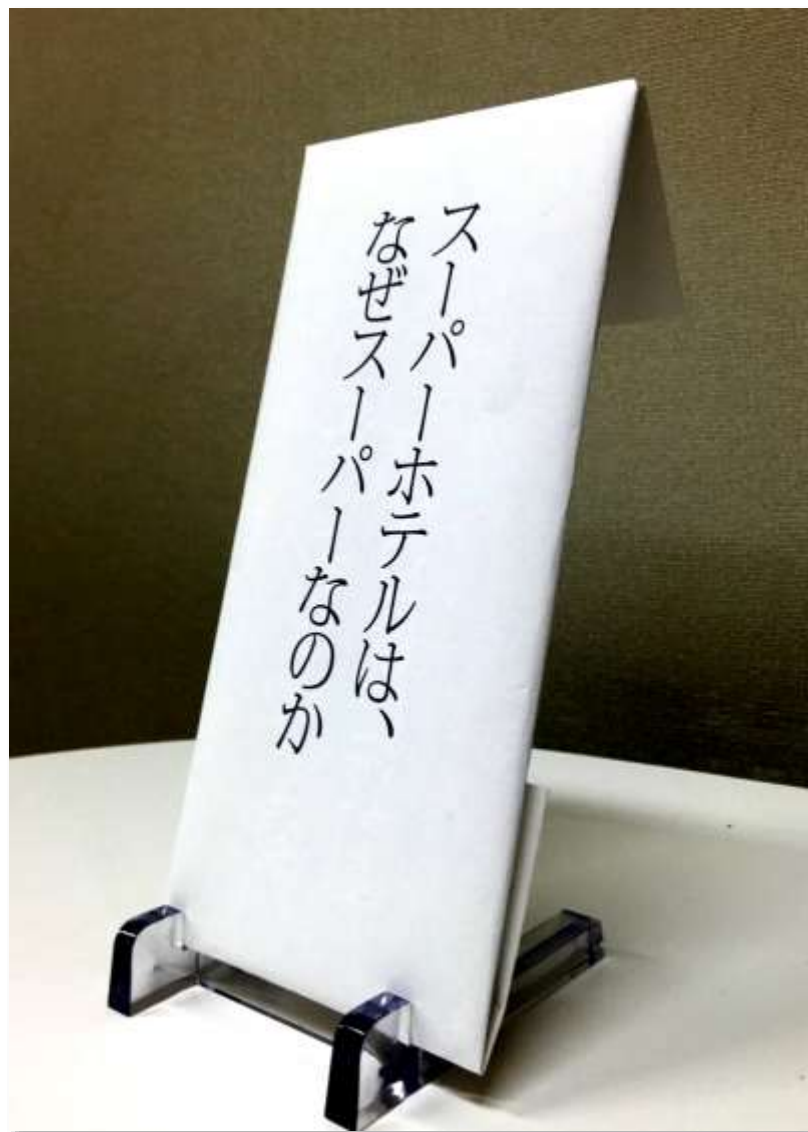 スーパーホテルは、
なぜスーパーなのか